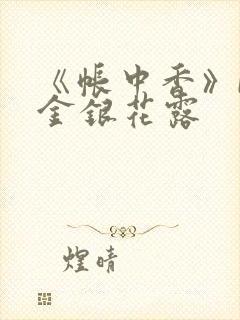 《帐中香》
金银花露
煌晴